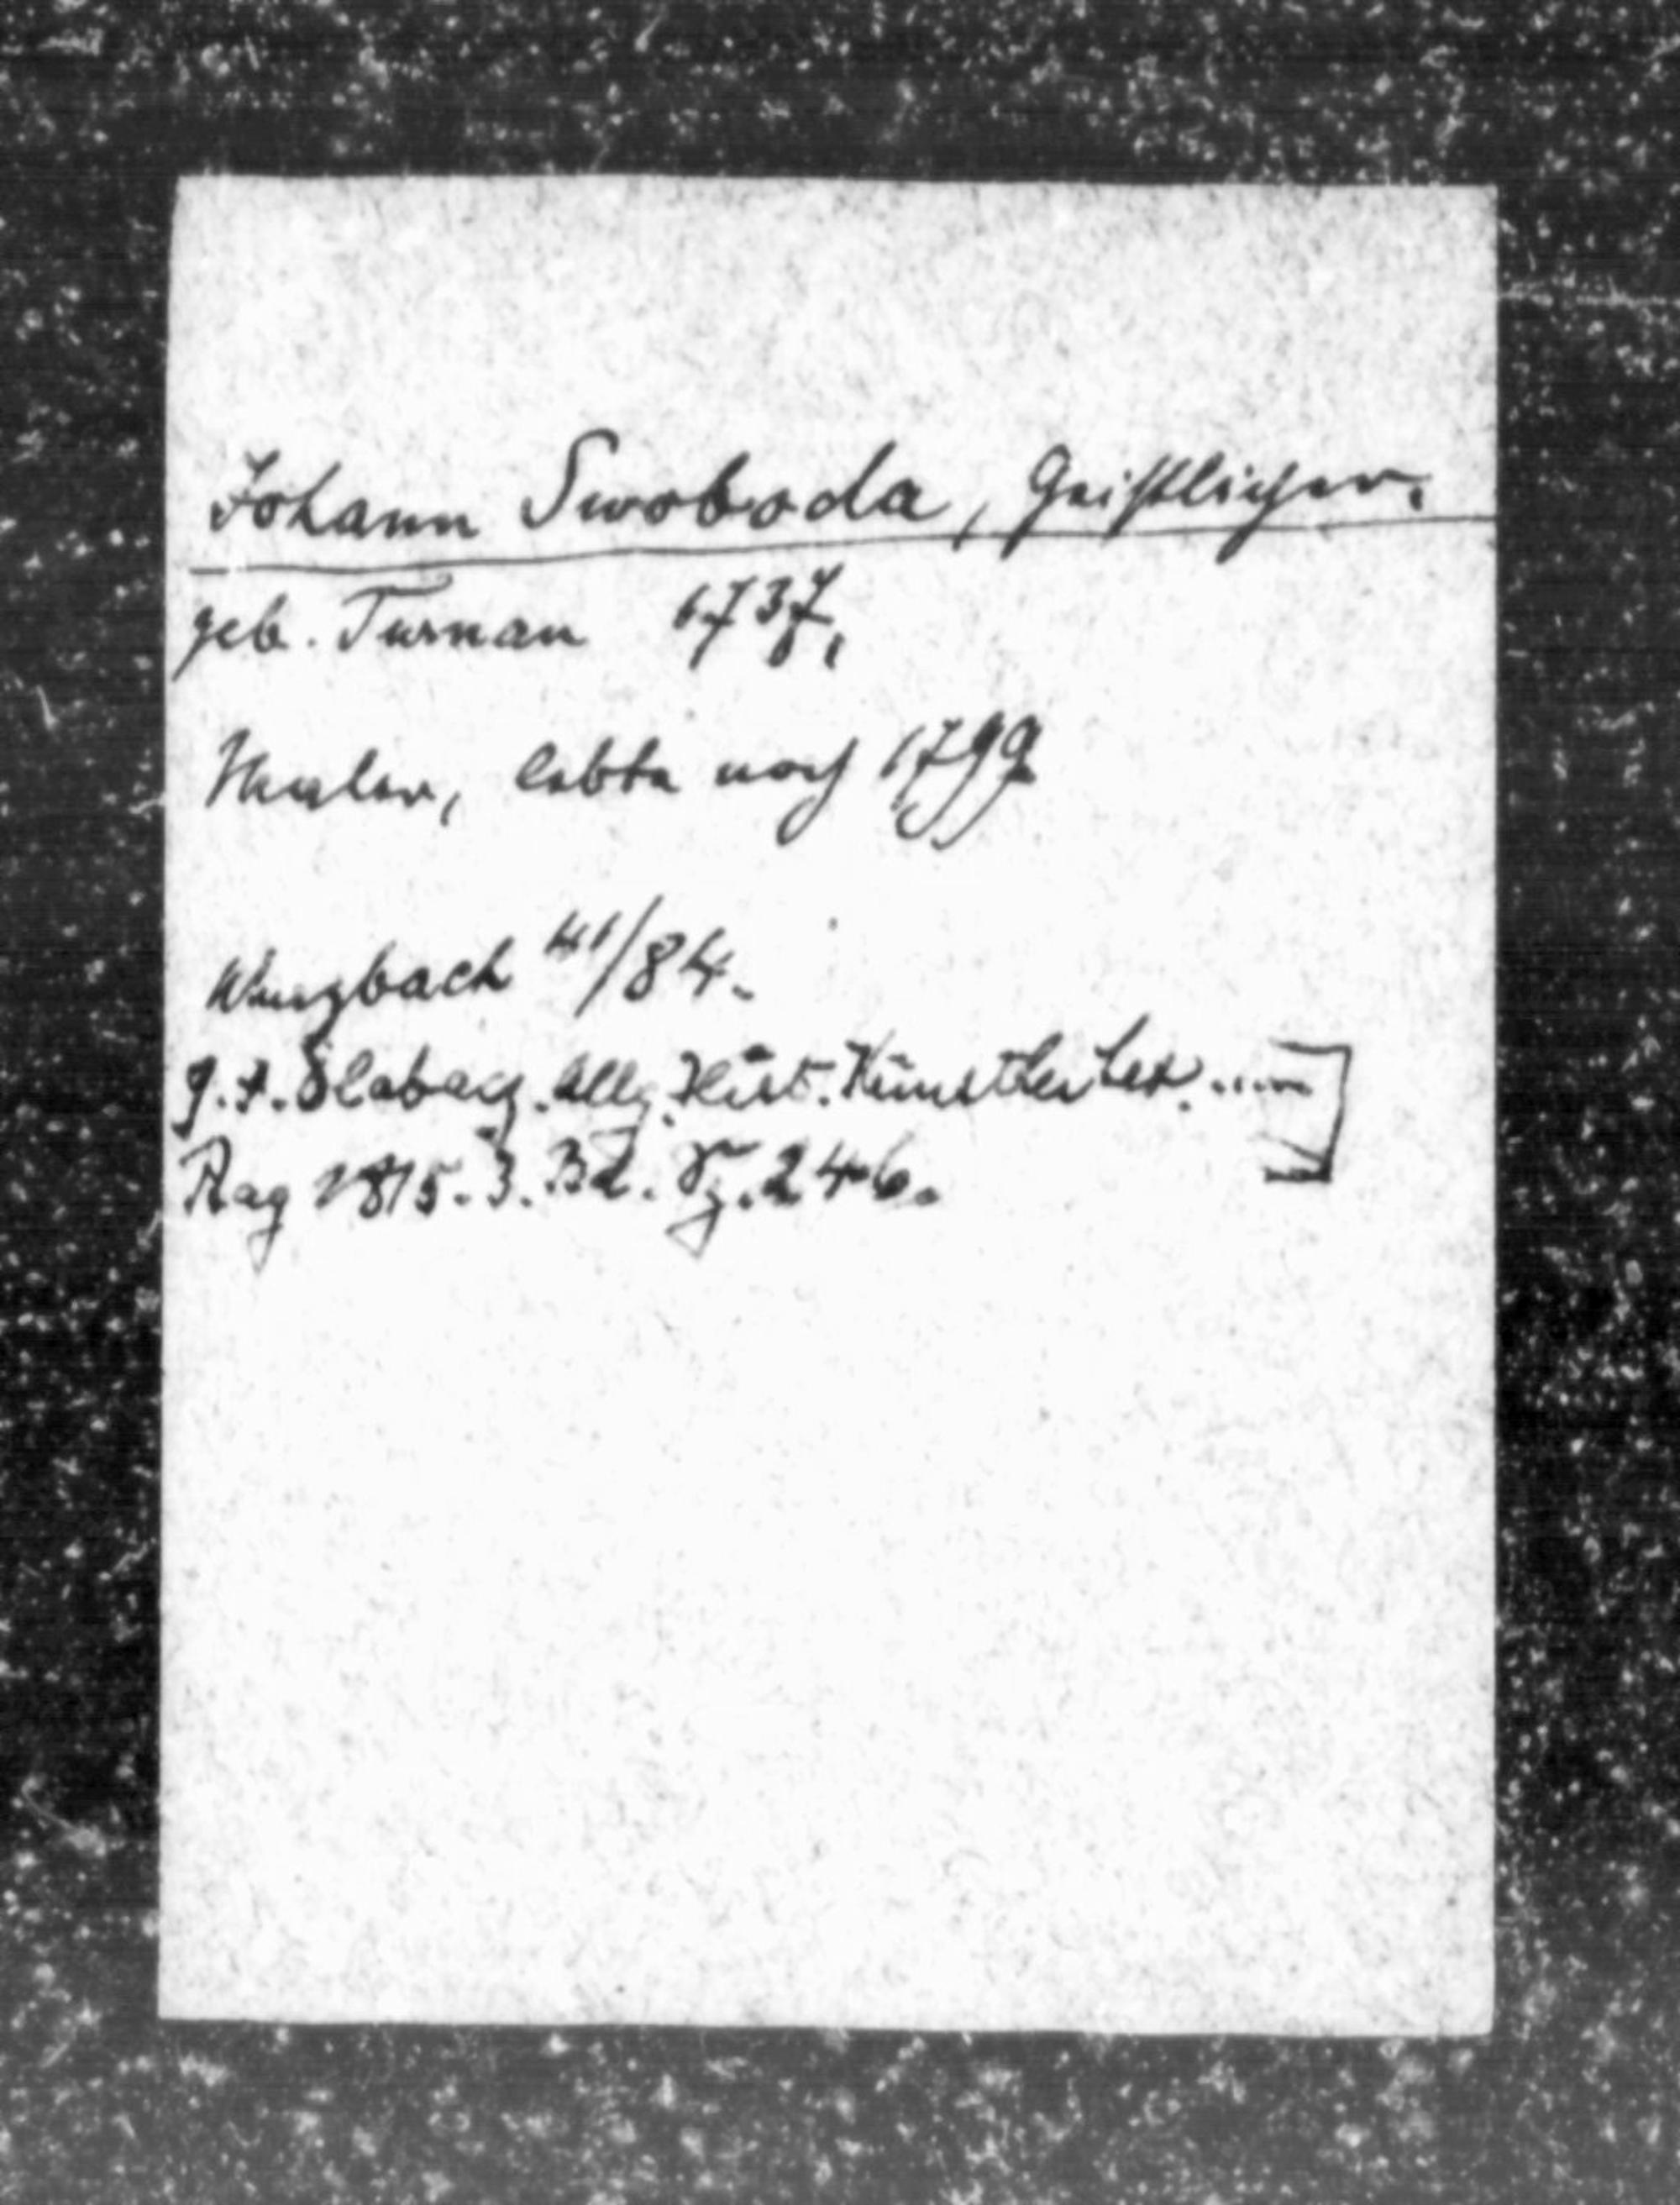 Johann Swoboda, Geistlicher.
geb. Turnau 1737,
Maler, lebte noch 1799
Wurzbach 41/84.
J. Dlabacz. Allg. Hist. Künstler Lex.....
Prag 1815. 3. Bd. Sp. 246.